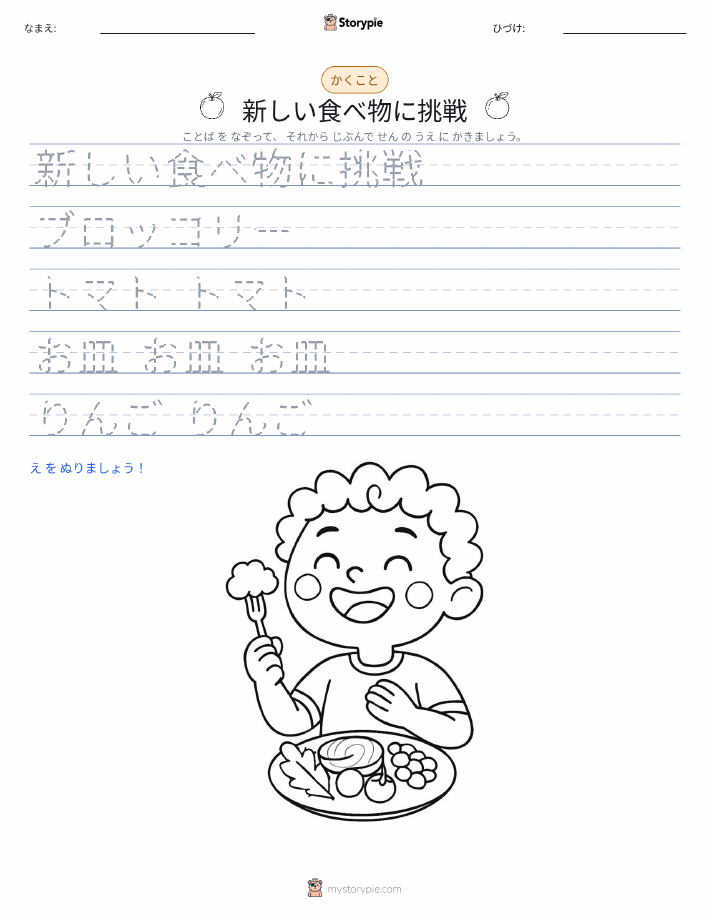 なまえ:
Storypie
ひづけ:
かくこと
新しい食べ物に挑戦
ことば を なぞって、 それから じぶんで せん の うえ に かきましょう。
新しい食べ物に挑戦
ブロッコリー
トマト トマト
お皿 お皿 お皿
りんご りんご
え を ぬりましょう！
mystorypie.com